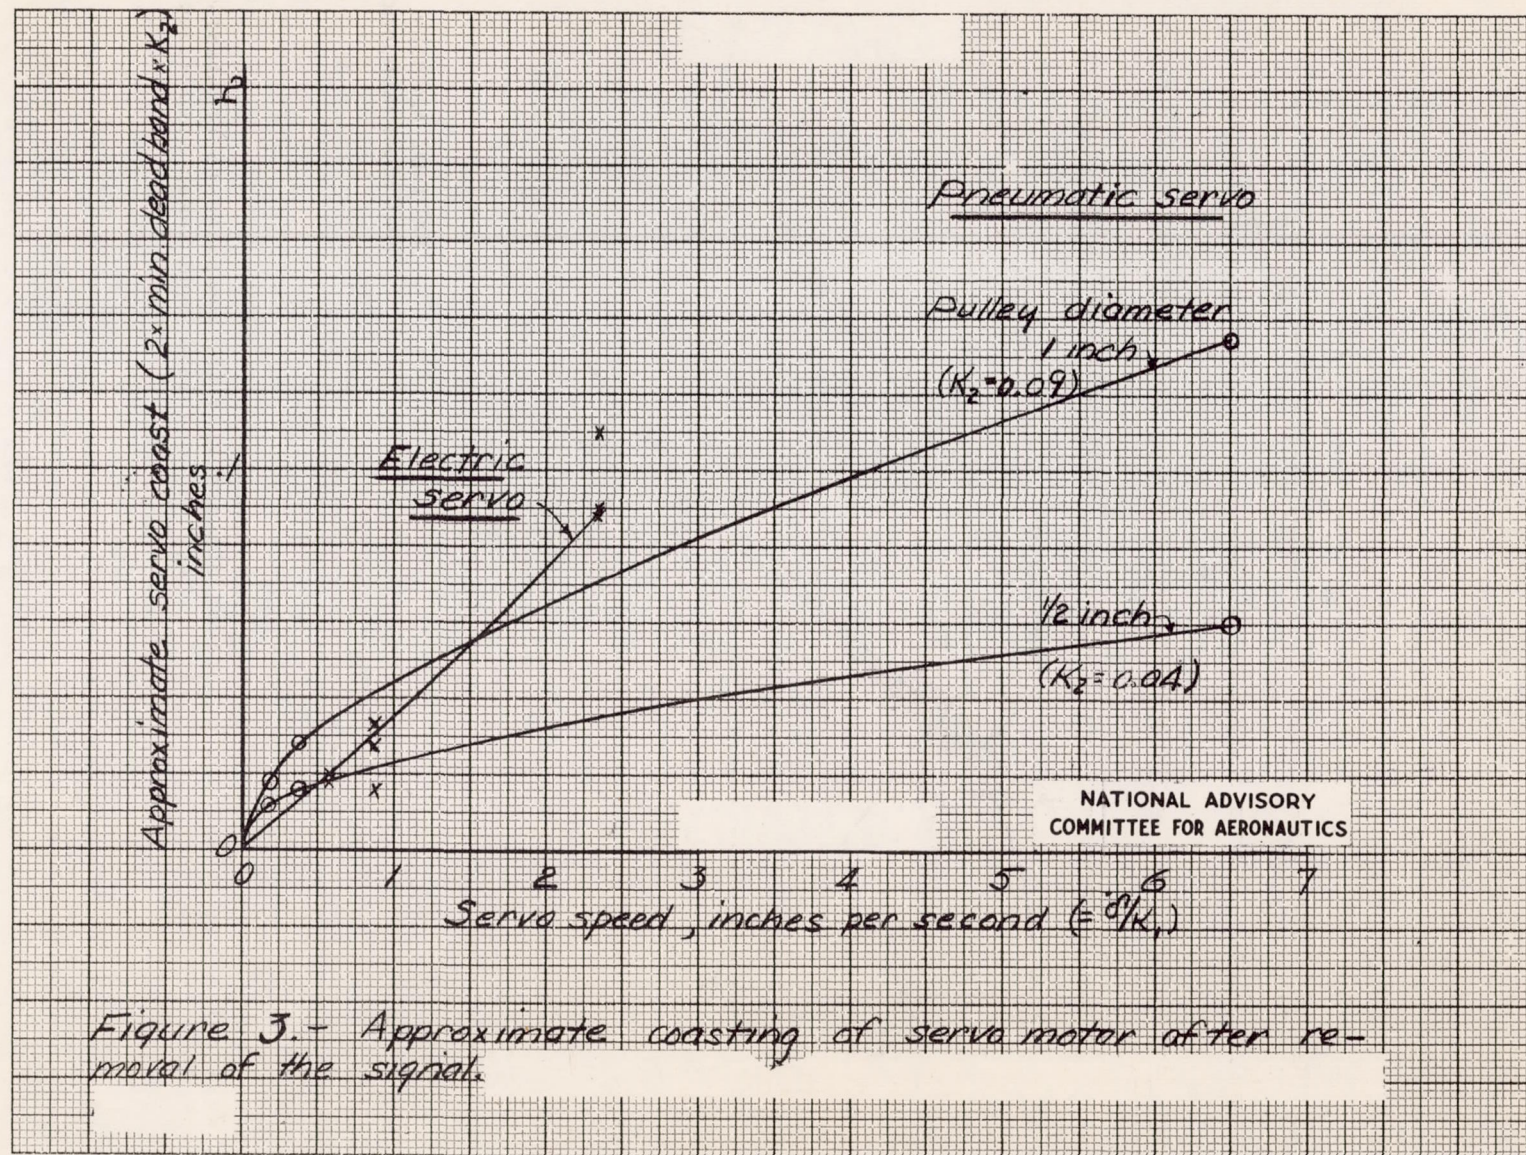 Approximate servo coast (2× min. dead band × K₂)
inches
.2
.1
0
Pneumatic servo
Pulley diameter
1 inch
(K₂=0.09)
Electric
servo
1/2 inch
(K₂=0.04)
NATIONAL ADVISORY
COMMITTEE FOR AERONAUTICS
0 1 2 3 4 5 6 7
Servo speed, inches per second (= δ̇/K₁)
Figure 3.- Approximate coasting of servo motor after re-
moval of the signal.